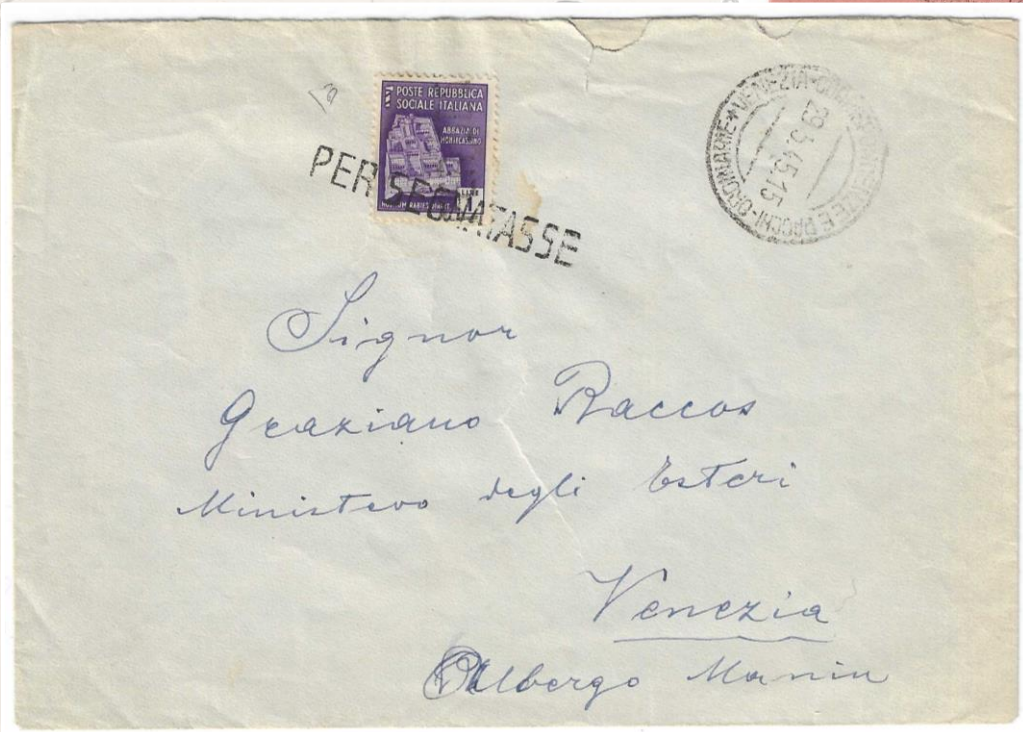 POSTE REPUBBLICA
SOCIALE ITALIANA
ABBAZIA DI
MONTECASSINO
LIRE
HOSTIUM RABIES DIRUIT
PER SEGNATASSE
VENEZIA
PACCHI-ORDINARIE
29.5.45.15
Signor
Graziano Raccos
Ministero degli Esteri
Venezia
Albergo Manin